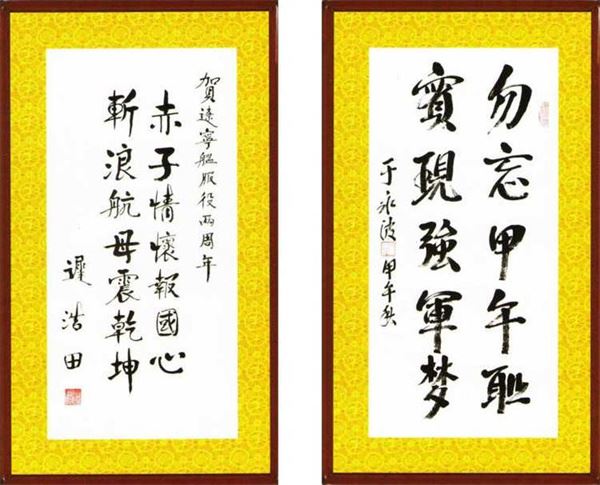 賀遼寧艦服役兩周年
赤子情懷報國心
斬浪航母震乾坤
遲浩田
勿忘甲午耻
實現強軍梦
于永波 甲午秋